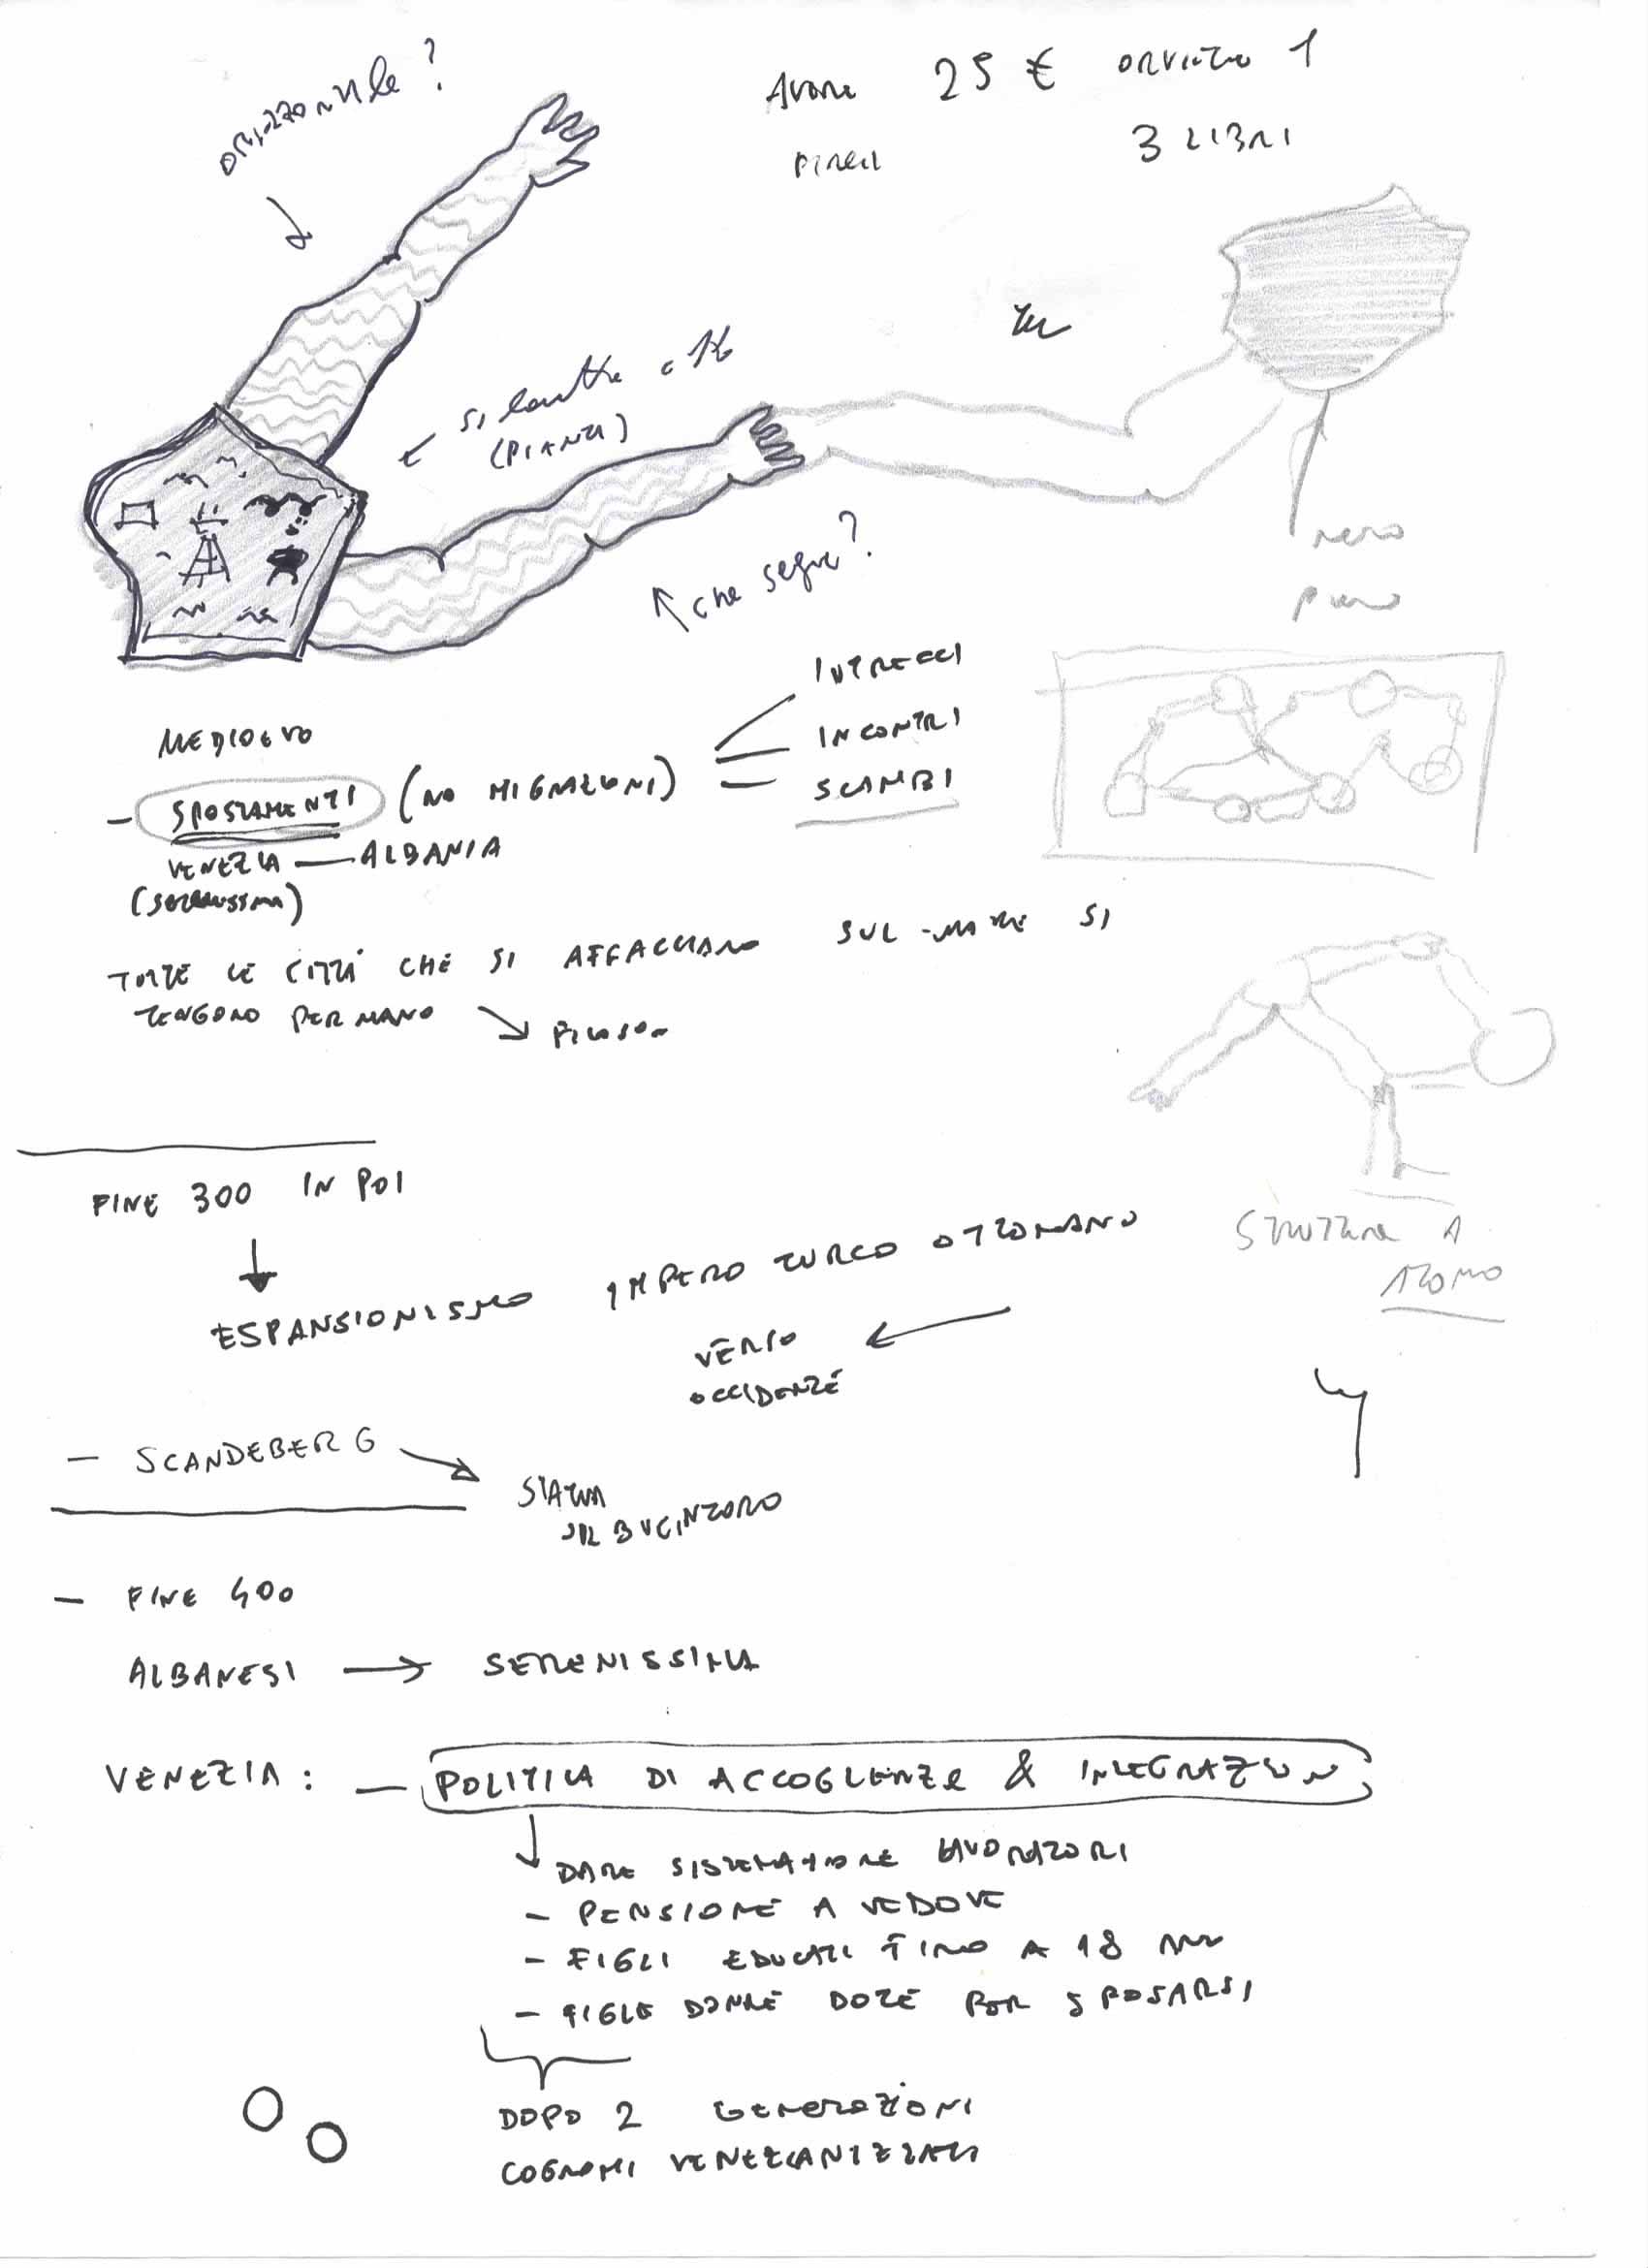 ORIZZONTALE?
25 € ORVIETO 1
3 LIBRI
SI
(PIANTA)
CHE SEGUE?
nero
pieno
MEDIOEVO
- SPOSTAMENTI (NO MIGRAZIONI)
INTRECCI
INCONTRI
SCAMBI
VENEZIA — ALBANIA
(SERENISSIMA)
TUTTE LE CITTÀ CHE SI AFFACCIANO SUL MARE SI
TENGONO PER MANO
STRUTTURA A
ATOMO
FINE 300 IN POI
ESPANSIONISMO IMPERO TURCO OTTOMANO
VERSO
OCCIDENTE
- SCANDEBERG
STATUA
BUCINTORO
- FINE 400
ALBANESI → SERENISSIMA
VENEZIA: - POLITICA DI ACCOGLIENZA & INTEGRAZION
DARE SISTEMAZIONE LAVORATORI
- PENSIONE A VEDOVE
- FIGLI EDUCATI FINO A 18
- FIGLIE DONNE DOTE PER SPOSARSI
DOPO 2 GENERAZIONI
COGNOMI VENEZIANIZZATI